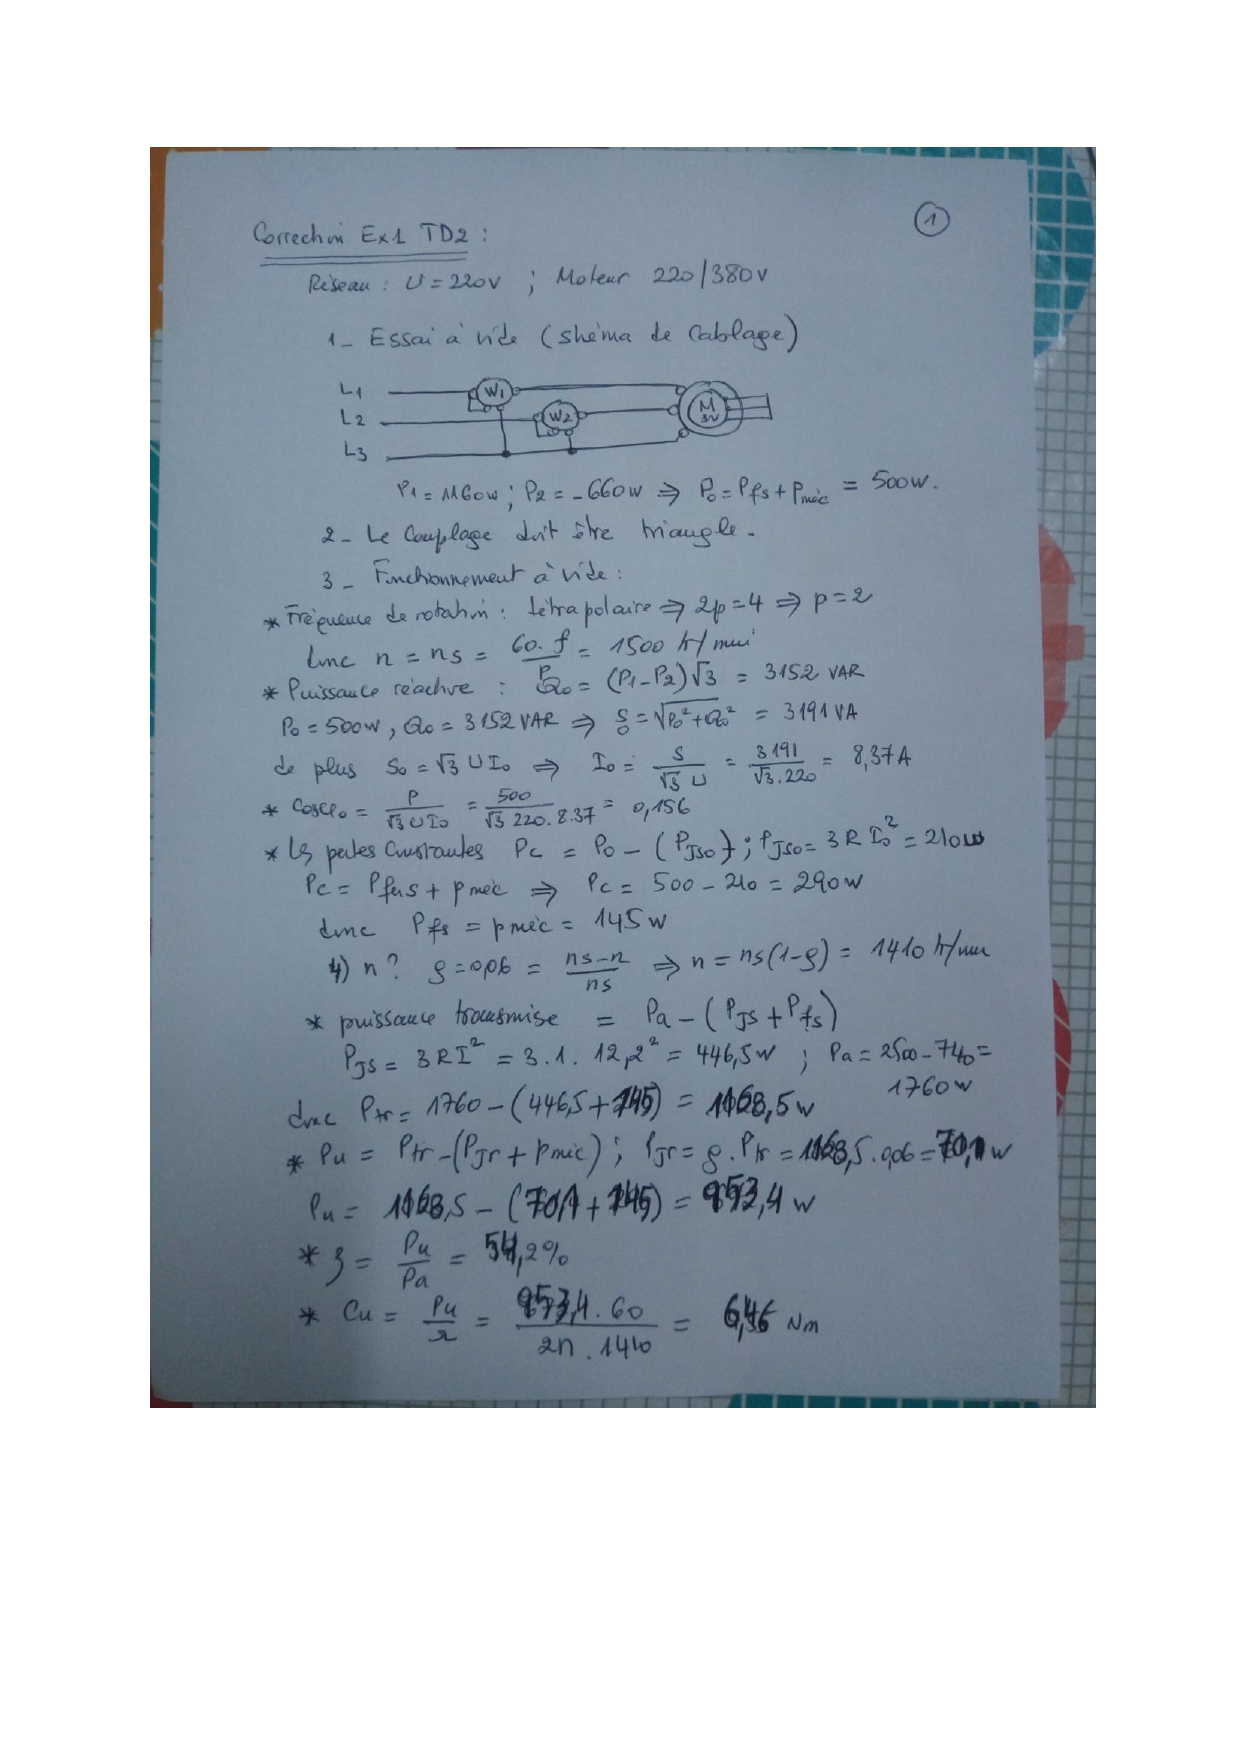 1
Correction Ex1 TD2 :
Réseau : U = 220V ; Moteur 220/380V
1- Essai à vide (shéma de Cablage)
L1 W1 M 3~
L2 W2
L3
P1 = 1160W ; P2 = -660W ⇒ P0 = Pfs + Pméc = 500W.
2- Le Couplage doit être triangle.
3- Fonctionnement à vide :
* Fréquence de rotation : tétrapolaire ⇒ 2p=4 ⇒ p=2
donc n = ns = 60.f/P = 1500 tr/min
* Puissance réactive : Q0 = (P1-P2)√3 = 3152 VAR
P0 = 500W, Q0 = 3152 VAR ⇒ S0 = √P0²+Q0² = 3191 VA
de plus S0 = √3 U I0 ⇒ I0 = S/√3 U = 3191/√3.220 = 8,37A
* Cosφ0 = P/√3 U I0 = 500/√3 220.8.37 = 0,156
* Les pertes Constantes Pc = P0 - (PJso) ; PJso = 3 R I0² = 210W
Pc = Pfers + pméc ⇒ Pc = 500 - 210 = 290W
donc Pfs = pméc = 145W
4) n? g = 0,06 = ns-n/ns ⇒ n = ns(1-g) = 1410 tr/min
* puissance transmise = Pa - (PJs + Pfs)
PJs = 3RI² = 3.1.12,2² = 446,5W ; Pa = 2500 - 740 =
1760W
donc Ptr = 1760 - (446,5 + 145) = 1168,5W
* Pu = Ptr - (PJr + pméc) ; PJr = g.Ptr = 1168,5.0,06 = 70,1W
Pu = 1168,5 - (70,1 + 145) = 953,4W
* η = Pu/Pa = 54,2%
* Cu = Pu/Ω = 953,4.60/2π.1410 = 6,46 Nm